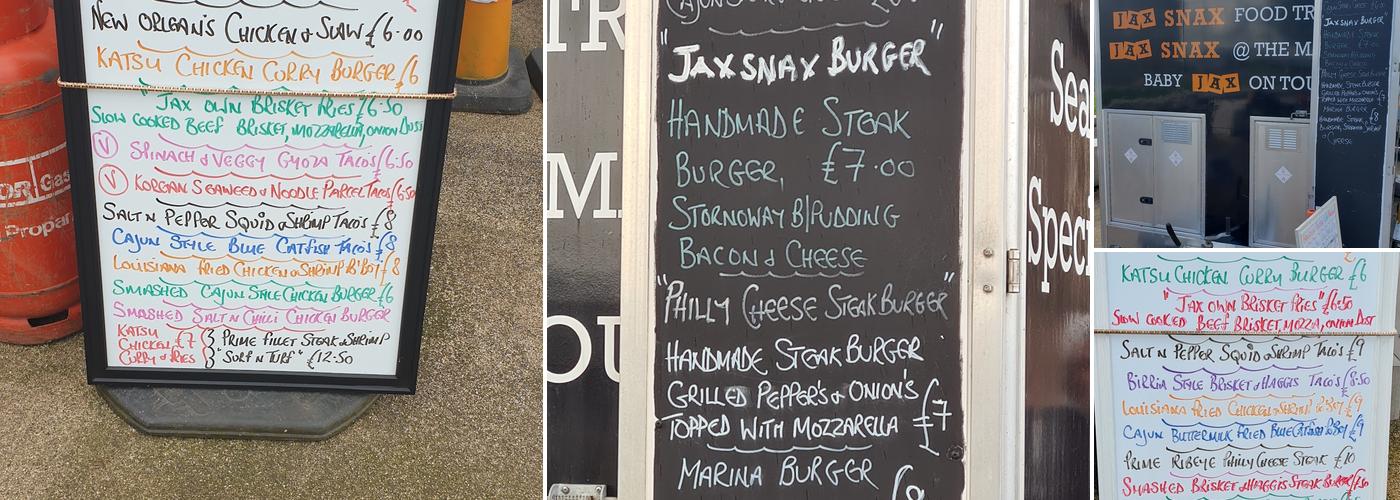 NEW ORLEAN'S CHICKEN & SLAW £6.00
KATSU CHICKEN CURRY BURGER £6
JAX OWN BRISKET FRIES £6.50
SLOW COOKED BEEF BRISKET, MOZZARELLA, ONION DUST
V SPINACH & VEGGY GYOZA TACOS £6.50
V KOREAN SEAWEED & NOODLE PARCEL TACOS £6.50
SALT N PEPPER SQUID & SHRIMP TACO'S £8
CAJUN STYLE BLUE CATFISH TACO'S £8
LOUISIANA FRIED CHICKEN & SHRIMP P'BOY £8
SMASHED CAJUN STYLE CHICKEN BURGER £6
SMASHED SALT N CHILLI CHICKEN BURGER
KATSU
CHICKEN £7
CURRY & FRIES
PRIME FILLET STEAK & SHRIMP
"SURF N TURF" £12.50
TR
M
OU
"JAXSNAX BURGER"
HANDMADE STEAK
BURGER, £7.00
STORNOWAY B/PUDDING
BACON & CHEESE
"PHILLY CHEESE STEAK BURGER"
HANDMADE STEAK BURGER
GRILLED PEPPER'S & ONION'S
TOPPED WITH MOZZARELLA £7
MARINA BURGER
Sea
Speci
OR Gas
Propan
JAX SNAX FOOD TR
JAX SNAX @ THE MA
BABY JAX ON TOU
JAXSNAX BURGER
HANDMADE STEAK
KATSU CHICKEN CURRY BURGER £6
"JAX OWN BRISKET FRIES" £6.50
SLOW COOKED BEEF BRISKET, MOZZA, ONION DUST
SALT N PEPPER SQUID & SHRIMP TACO'S £9
BIRRIA STYLE BRISKET & HAGGIS TACO'S £8.50
LOUISIANA FRIED CHICKEN & SHRIMP P'BOY £9
CAJUN BUTTERMILK FRIED BLUE CATFISH P'BOY £9
PRIME RIBEYE PHILLY CHEESE STEAK £10
SMASHED BRISKET & HAGGIS STEAK BURGER